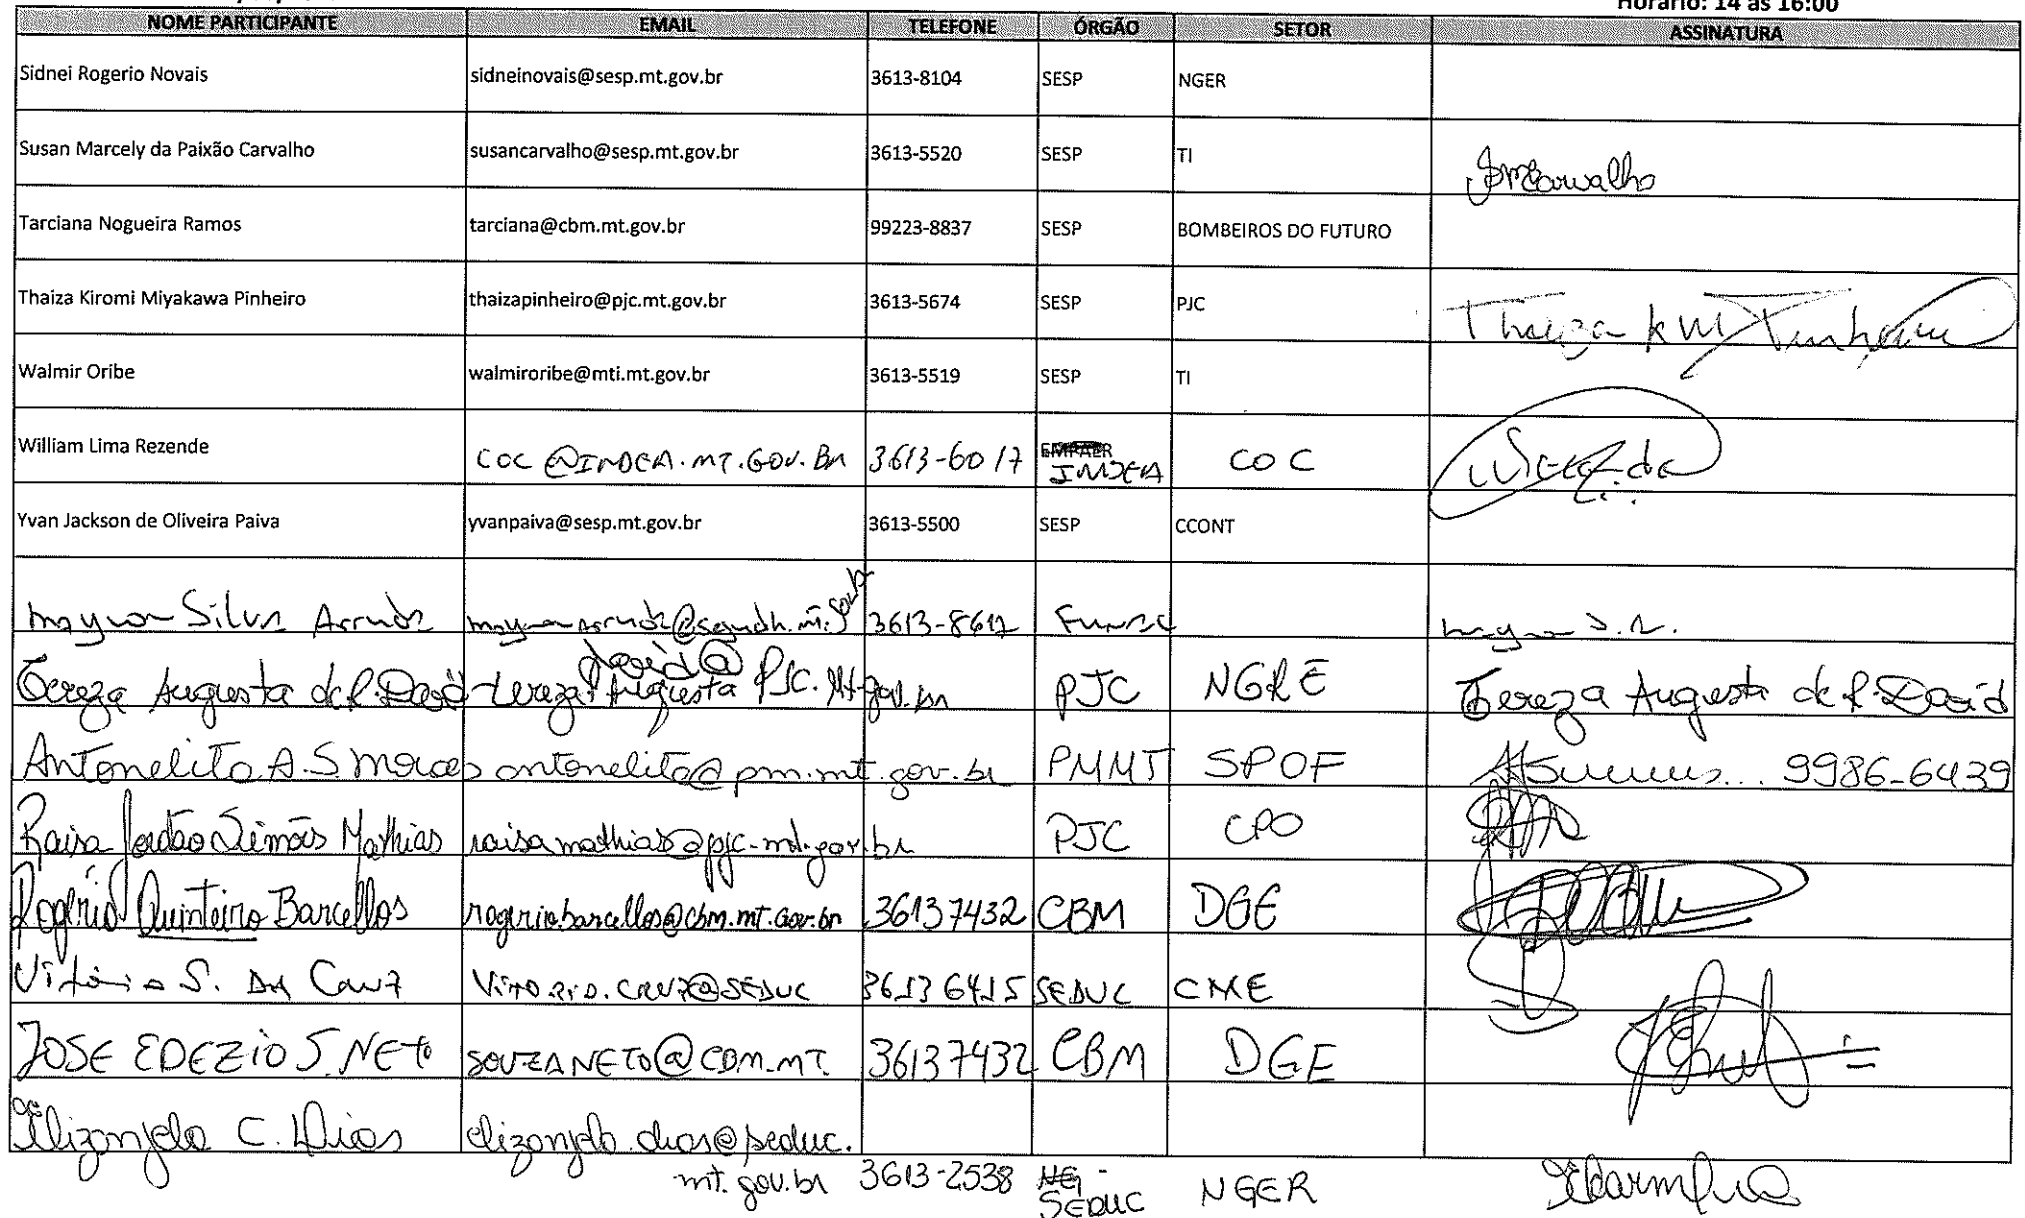 Horário: 14 às 16:00
NOME PARTICIPANTE EMAIL TELEFONE ÓRGÃO SETOR ASSINATURA
Sidnei Rogerio Novais sidneinovais@sesp.mt.gov.br 3613-8104 SESP NGER
Susan Marcely da Paixão Carvalho susancarvalho@sesp.mt.gov.br 3613-5520 SESP TI SMPCarvalho
Tarciana Nogueira Ramos tarciana@cbm.mt.gov.br 99223-8837 SESP BOMBEIROS DO FUTURO
Thaiza Kiromi Miyakawa Pinheiro thaizapinheiro@pjc.mt.gov.br 3613-5674 SESP PJC Thaiza KM Pinheiro
Walmir Oribe walmiroribe@mti.mt.gov.br 3613-5519 SESP TI
William Lima Rezende COC@INDEA.MT.GOV.BR 3613-6017 EMPAER INDEA COC
Yvan Jackson de Oliveira Paiva yvanpaiva@sesp.mt.gov.br 3613-5500 SESP CCONT
Silva Arruda 3613-8617
Tereza Augusta de P. David tereza.Augusta david@ PJC.Mt.gov.br PJC NGRE Tereza Augusta de P. David
Antonelito A. S. Moraes antonelito@pm.mt.gov.br PMMT SPOF 9986-6439
Raisa Jordão Simões Mathias raisamathias@pjc.mt.gov.br PJC CPO
Rogério Quinteiro Barcellos rogeriobarcellos@cbm.mt.gov.br 36137432 CBM DGE
Vitório S. Da Cruz VITORIO.CRUZ@SEDUC 36136415 SEDUC CME
JOSE EDEZIO S. NETO SOUZANETO@CBM.MT. 36137432 CBM DGE
Elizangela C. Dias elizangela.dias@seduc.
mt.gov.br 3613-2538 NG - SEDUC NGER